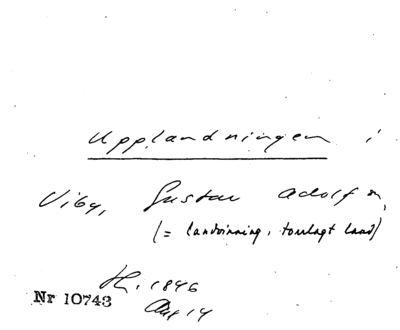 Upplandningen i
Viby, Gustav Adolf sn,
(= landvinning, torrlagt land)
H. 1846
Nr 10743
Aug 14